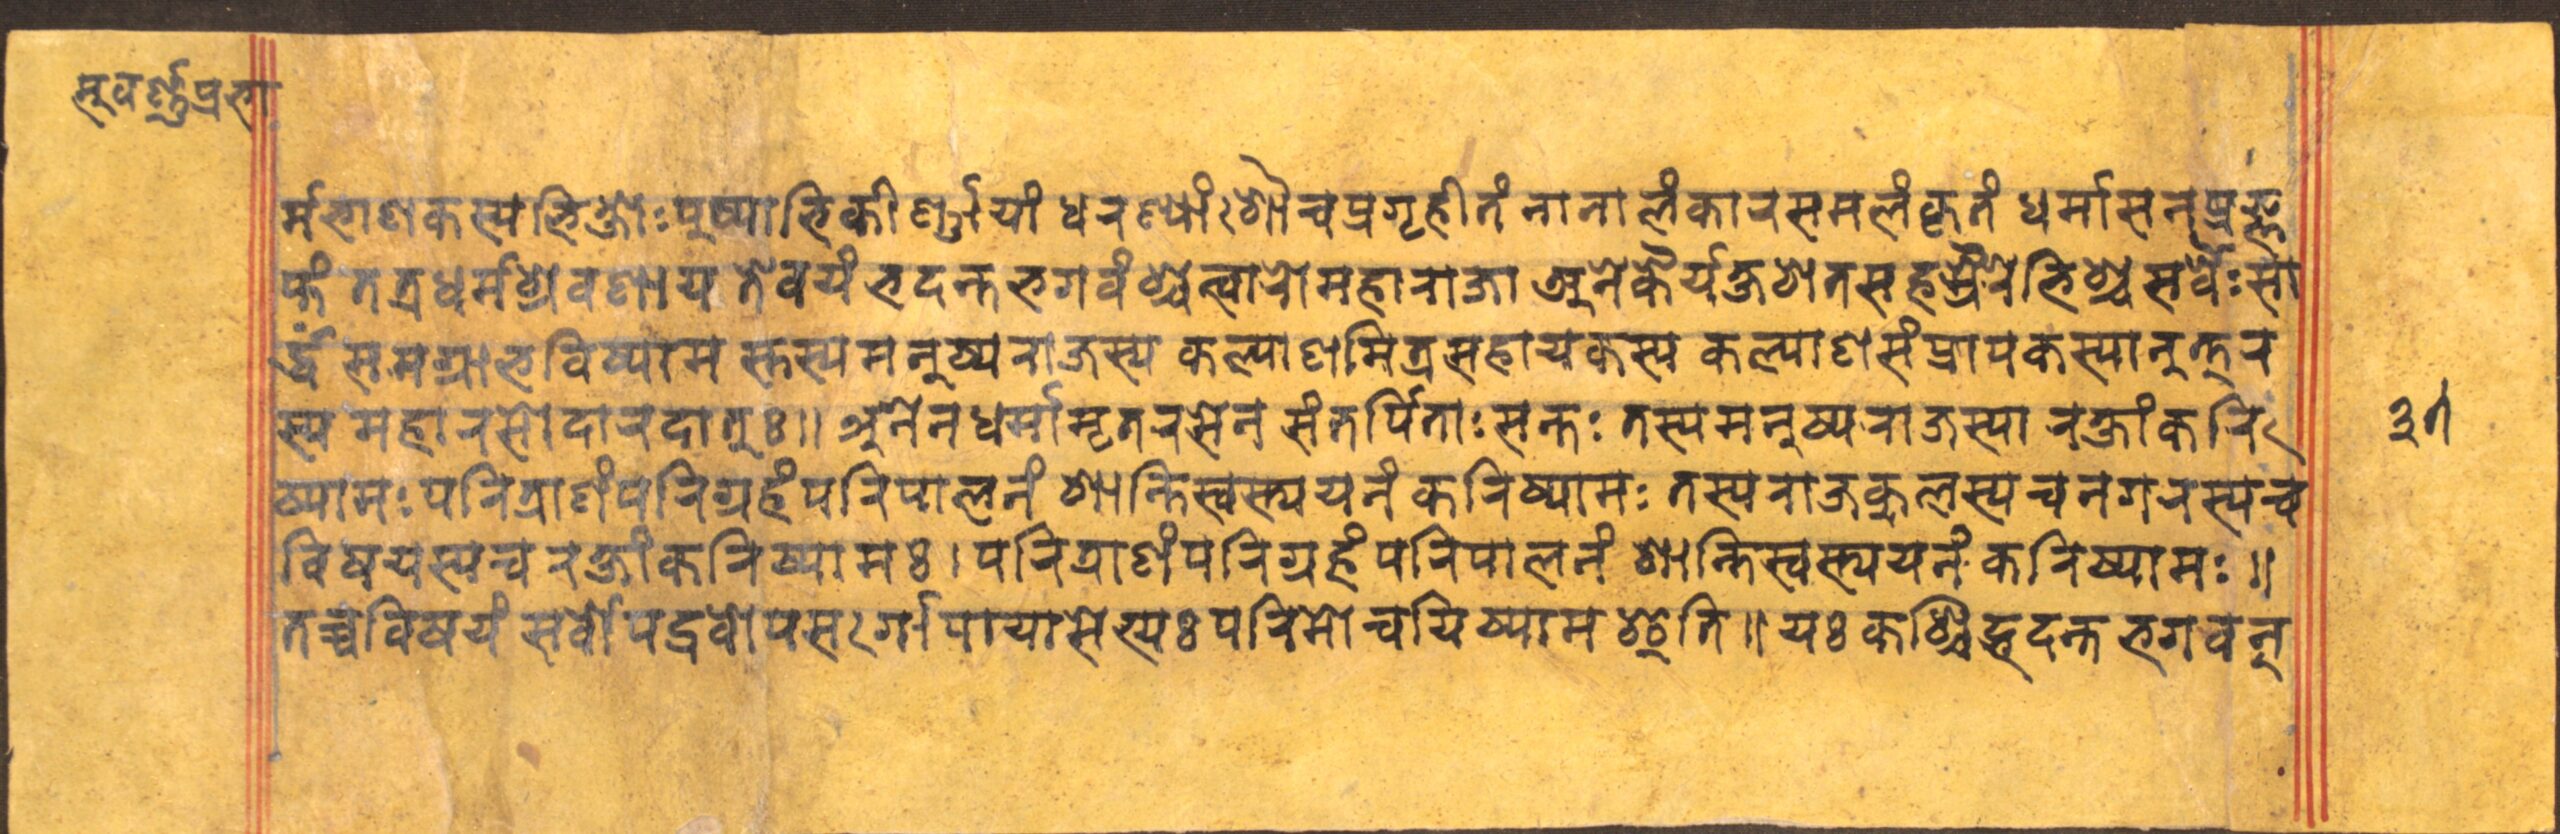 सुवर्ण्णप्रभा
र्मभाणकस्य भिक्षोः पुष्पाभिकीर्ण्णायां धरण्यां शौचप्रगृहीतं नानालंकारसमलंकृतं धर्मासनप्रज्ञ
प्तं तत्र धर्मश्रवणाय ते वयं भदन्त भगवंश्चत्वारो महाराजा अनेकैर्यक्षशतसहस्रैरेभिश्च सर्वैः सा
र्द्धं समग्रा भविष्याम स्तस्य मनुष्यराजस्य कल्याणमित्रसहायकस्य कल्याणसंप्रापकस्यानुत्तर
स्य महारसोदारदातुः॥ अनेन धर्मामृतरसेन संतर्पिताः सन्तः तस्य मनुष्यराजस्या रक्षां करि
ष्यामः परित्राणं परिग्रहं परिपालनं शान्तिस्वस्त्ययनं करिष्यामः तस्य राजकुलस्य च नगरस्य च
विषयस्य च रक्षां करिष्यामः। परित्राणं परिग्रहं परिपालनं शान्तिस्वस्त्ययनं करिष्यामः॥
तच्च विषयं सर्वोपद्रवोपसर्गोपायासेभ्यः परिमोचयिष्याम इति॥ यः कश्चिद्भदन्त भगवन्